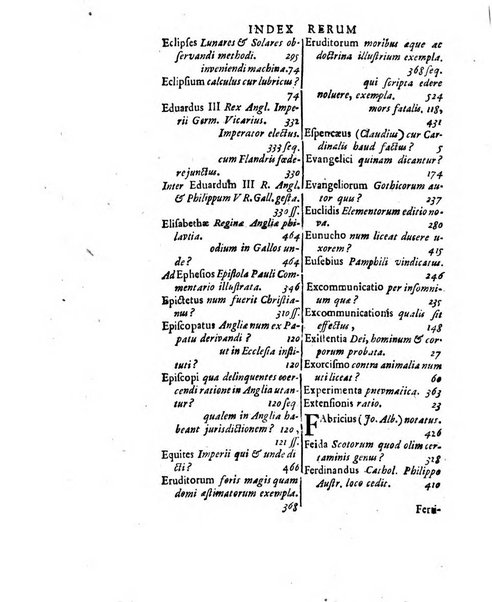 INDEX RERUM
Eclipses Lunares & Solares ob-
servandi methodi. 295
inveniendi machina. 74
Eclipsium calculus cur lubricus?
74
Eduardus III Rex Angl. Impe-
rii Germ. Vicarius. 332
Imperator electus.
333 seq.
cum Flandris fœde-
re junctus. 330
Inter Eduardum III R. Angl.
& Philippum V R. Gall. gesta.
330 ss.
Elisabethæ Reginæ Angliæ phi-
lavtia. 464
odium in Gallos un-
de? 464
Ad Ephesios Epistola Pauli Com-
mentario illustrata. 346
Epictetus num fuerit Christia-
nus? 310 ss.
Episcopatus Angliæ num ex Pa-
patu derivandi? 120
ut in Ecclesia insti-
tuti? 120
Episcopi qua delinquentes coer-
cendi ratione in Anglia utan-
tur? 120 seq
qualem in Anglia ha-
beant jurisdictionem? 120,
121 ss.
Equites Imperii qui & unde di
cti? 466
Eruditorum foris magis quam
domi æstimatorum exempla.
368
Eruditorum moribus æque ac
doctrina illustrium exempla.
368 seq.
qui scripta edere
noluere, exempla. 524
mors fatalis. 118,
431
Espencæus (Claudius) cur Car-
dinalis haud factus? 5
Evangelici quinam dicantur?
174
Evangeliorum Gothicorum au-
tor quu? 237
Euclidis Elementorum editio no-
va. 280
Eunucho num liceat ducere u-
xorem? 415
Eusebius Pamphili vindicatus.
246
Excommunicatio per insomni-
um quæ? 235
Excommunicationis qualis sit
effectus, 148
Existentia Dei, hominum & cor-
porum probata. 27
Exorcismo contra animalia num
uti liceat? 60
Experimenta pnevmatica. 363
Extensionis ratio. 23
Fabricius (Jo. Alb.) notatus.
426
Feida Scotorum quod olim cer-
taminis genus? 328
Ferdinandus Cathol. Philippo
Austr. loco cedit. 410
Ferdi-